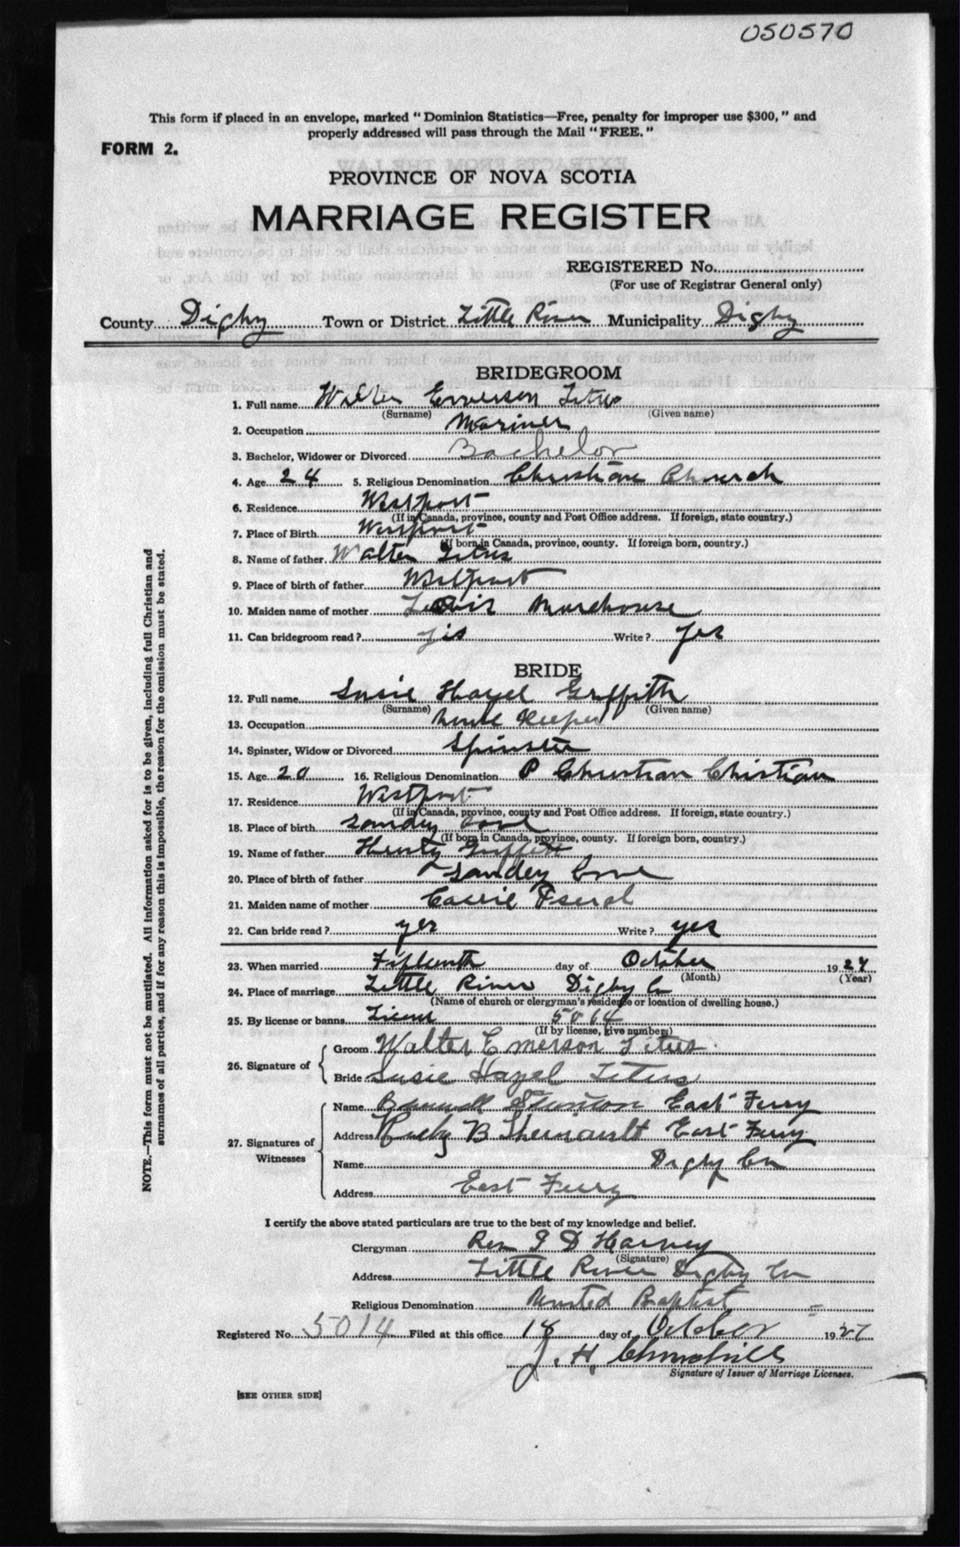 050570
This form if placed in an envelope, marked "Dominion Statistics—Free, penalty for improper use $300," and
properly addressed will pass through the Mail "FREE."
FORM 2.
PROVINCE OF NOVA SCOTIA
MARRIAGE REGISTER
REGISTERED No.
(For use of Registrar General only)
County Digby Town or District Little River Municipality Digby
BRIDEGROOM
1. Full name Walter Emerson Titus
(Surname) (Given name)
2. Occupation Mariner
3. Bachelor, Widower or Divorced Bachelor
4. Age 24 5. Religious Denomination Christian Church
6. Residence Westport
(If in Canada, province, county and Post Office address. If foreign, state country.)
7. Place of Birth Westport
(If born in Canada, province, county. If foreign born, country.)
8. Name of father Walter Titus
9. Place of birth of father Westport
10. Maiden name of mother Morehouse
11. Can bridegroom read? yes Write? yes
BRIDE
12. Full name Susie Hazel Griffith
(Surname) (Given name)
13. Occupation House Keeper
14. Spinster, Widow or Divorced Spinster
15. Age 20 16. Religious Denomination P Christian Christian
17. Residence Westport
(If in Canada, province, county and Post Office address. If foreign, state country.)
18. Place of birth Sandey Cove
(If born in Canada, province, county. If foreign born, country.)
19. Name of father Henty Griffith
20. Place of birth of father Sandey Cove
21. Maiden name of mother Carrie
22. Can bride read? yes Write? yes
23. When married Fifteenth day of October 1927
(Month) (Year)
24. Place of marriage Little River Digby Co
(Name of church or clergyman's residence or location of dwelling house.)
25. By license or banns Licens 5014
(If by license, give number.)
26. Signature of
Groom Walter Emerson Titus
Bride Susie Hazel Titus
27. Signatures of Witnesses
Name Stanton East Ferry
Address Ruby B Theriault East Ferry
Name Digby Co
Address East Ferry
I certify the above stated particulars are true to the best of my knowledge and belief.
Clergyman Rev J D Harney
(Signature)
Address Little River Digby Co
Religious Denomination United Baptist
Registered No. 5014 Filed at this office 18 day of October 1927
J. H. Churchill
Signature of Issuer of Marriage Licenses.
[SEE OTHER SIDE]
NOTE.—This form must not be mutilated. All information asked for is to be given, including full Christian and
surnames of all parties, and if for any reason this is impossible, the reason for the omission must be stated.